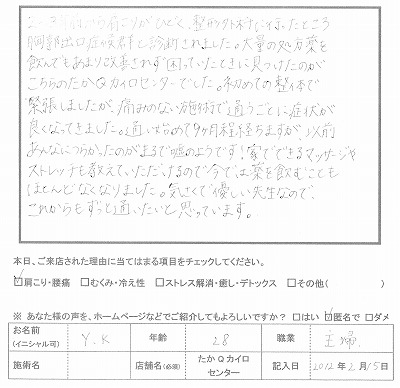 2〜3年前から肩こりがひどく、整形外科に行ったところ
胸郭出口症候群と診断されました。大量の処方薬を
飲んでもあまり改善されず困っていたときに見つけたのが
こちらのたかQカイロセンターでした。初めての整体で
緊張しましたが、痛みのない施術で通うごとに症状が
良くなってきました。通い始めて9ヶ月程経ちますが、以前
あんなにつらかったのがまるで嘘のようです!家でできるマッサージや
ストレッチも教えていただけるので今では薬を飲むことも
ほとんどなくなりました。気さくで優しい先生なので、
これからもずっと通いたいと思っています。
本日、ご来店された理由に当てはまる項目をチェックしてください。
☑肩こり・腰痛 □むくみ・冷え性 □ストレス解消・癒し・デトックス □その他( )
※ あなた様の声を、ホームページなどでご紹介してもよろしいですか? □はい ☑匿名で □ダメ
お名前 (イニシャル可) Y.K 年齢 28 職業 主婦
施術名 店舗名(必須) たかQカイロセンター 記入日 2012年2月15日